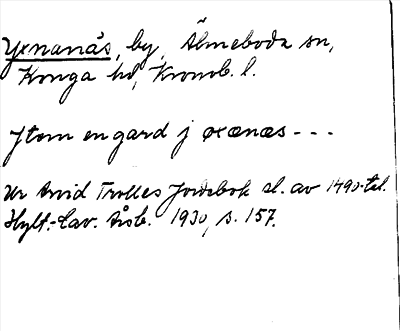 Yxnanäs, by, Älmeboda sn,
Konga hd, Kronob. l.
Jtem en gard j oxænæs - - -
Ur Arvid Trolles Jordebok sl. av 1490-tal.
Hylt.-Cav. Årsb. 1930, s. 157.